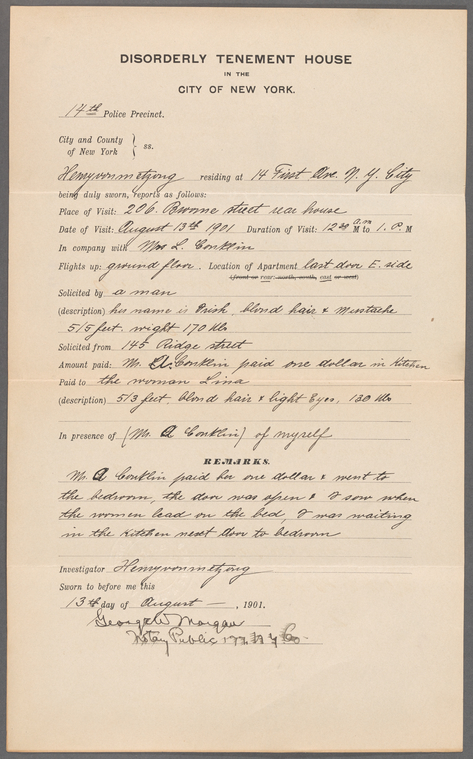 DISORDERLY TENEMENT HOUSE
IN THE
CITY OF NEW YORK.
14th Police Precinct.
City and County
of New York } ss.
Henryvonmetzong residing at 14 First Ave. N. Y. City
being duly sworn, reports as follows:
Place of Visit: 206. Broome street rear house
Date of Visit: August 13th 1901 Duration of Visit: 12 30 a.m M to 1. P. M
In company with Mr L. Conklin
Flights up: ground floor. Location of Apartment last door E. side
(front or rear; north, south, east or west)
Solicited by a man
(description) his name is Prisk, blond hair & Mustache
5/5 feet. wight 170 lbs
Solicited from 145 Ridge street
Amount paid: Mr. A. Conklin paid one dollar in Kitchen
Paid to the woman Lina
(description) 5/3 feet. blond hair & light Eyes, 130 lbs
In presence of (Mr. A Conklin) of myself
REMARKS.
Mr. A Conklin paid her one dollar & went to
the bedroom, the door was open & I saw when
the women lead on the bed, I was waiting
in the Kitchen next door to bedroom
Investigator Henryvonmetzong
Sworn to before me this
13th day of August , 1901.
George W Morgan
Notary Public N Y Co